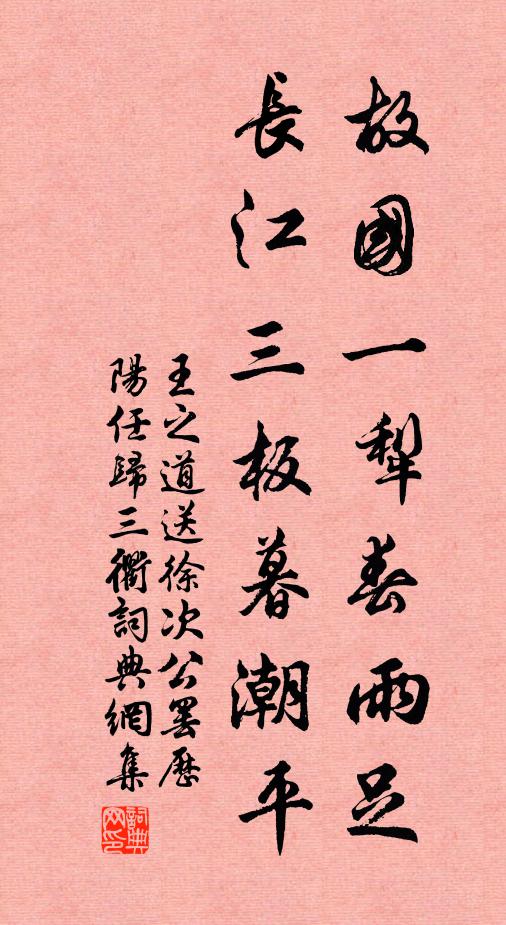 故國一犁春雨足
長江三板暮潮平
王之道送徐次公罢歷
陽任歸三衢詞典網集
詞典网印